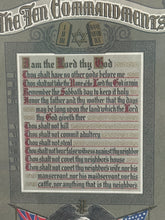 The Ten Commandments
I am the Lord thy God
Thou shalt have no other gods before me
Thou shalt not take the Name of the Lord thy God in vain
Remember the Sabbath day to keep it holy
Honor thy father and thy mother that thy days
may be long upon the land which the Lord
thy God giveth thee
Thou shalt not kill
Thou shalt not commit adultery
Thou shalt not steal
Thou shalt not bear false witness against thy neighbor
Thou shalt not covet thy neighbor's house
Thou shalt not covet thy neighbor's wife nor his
manservant, nor his maidservant, nor his
cattle, nor anything that is thy neighbor's.